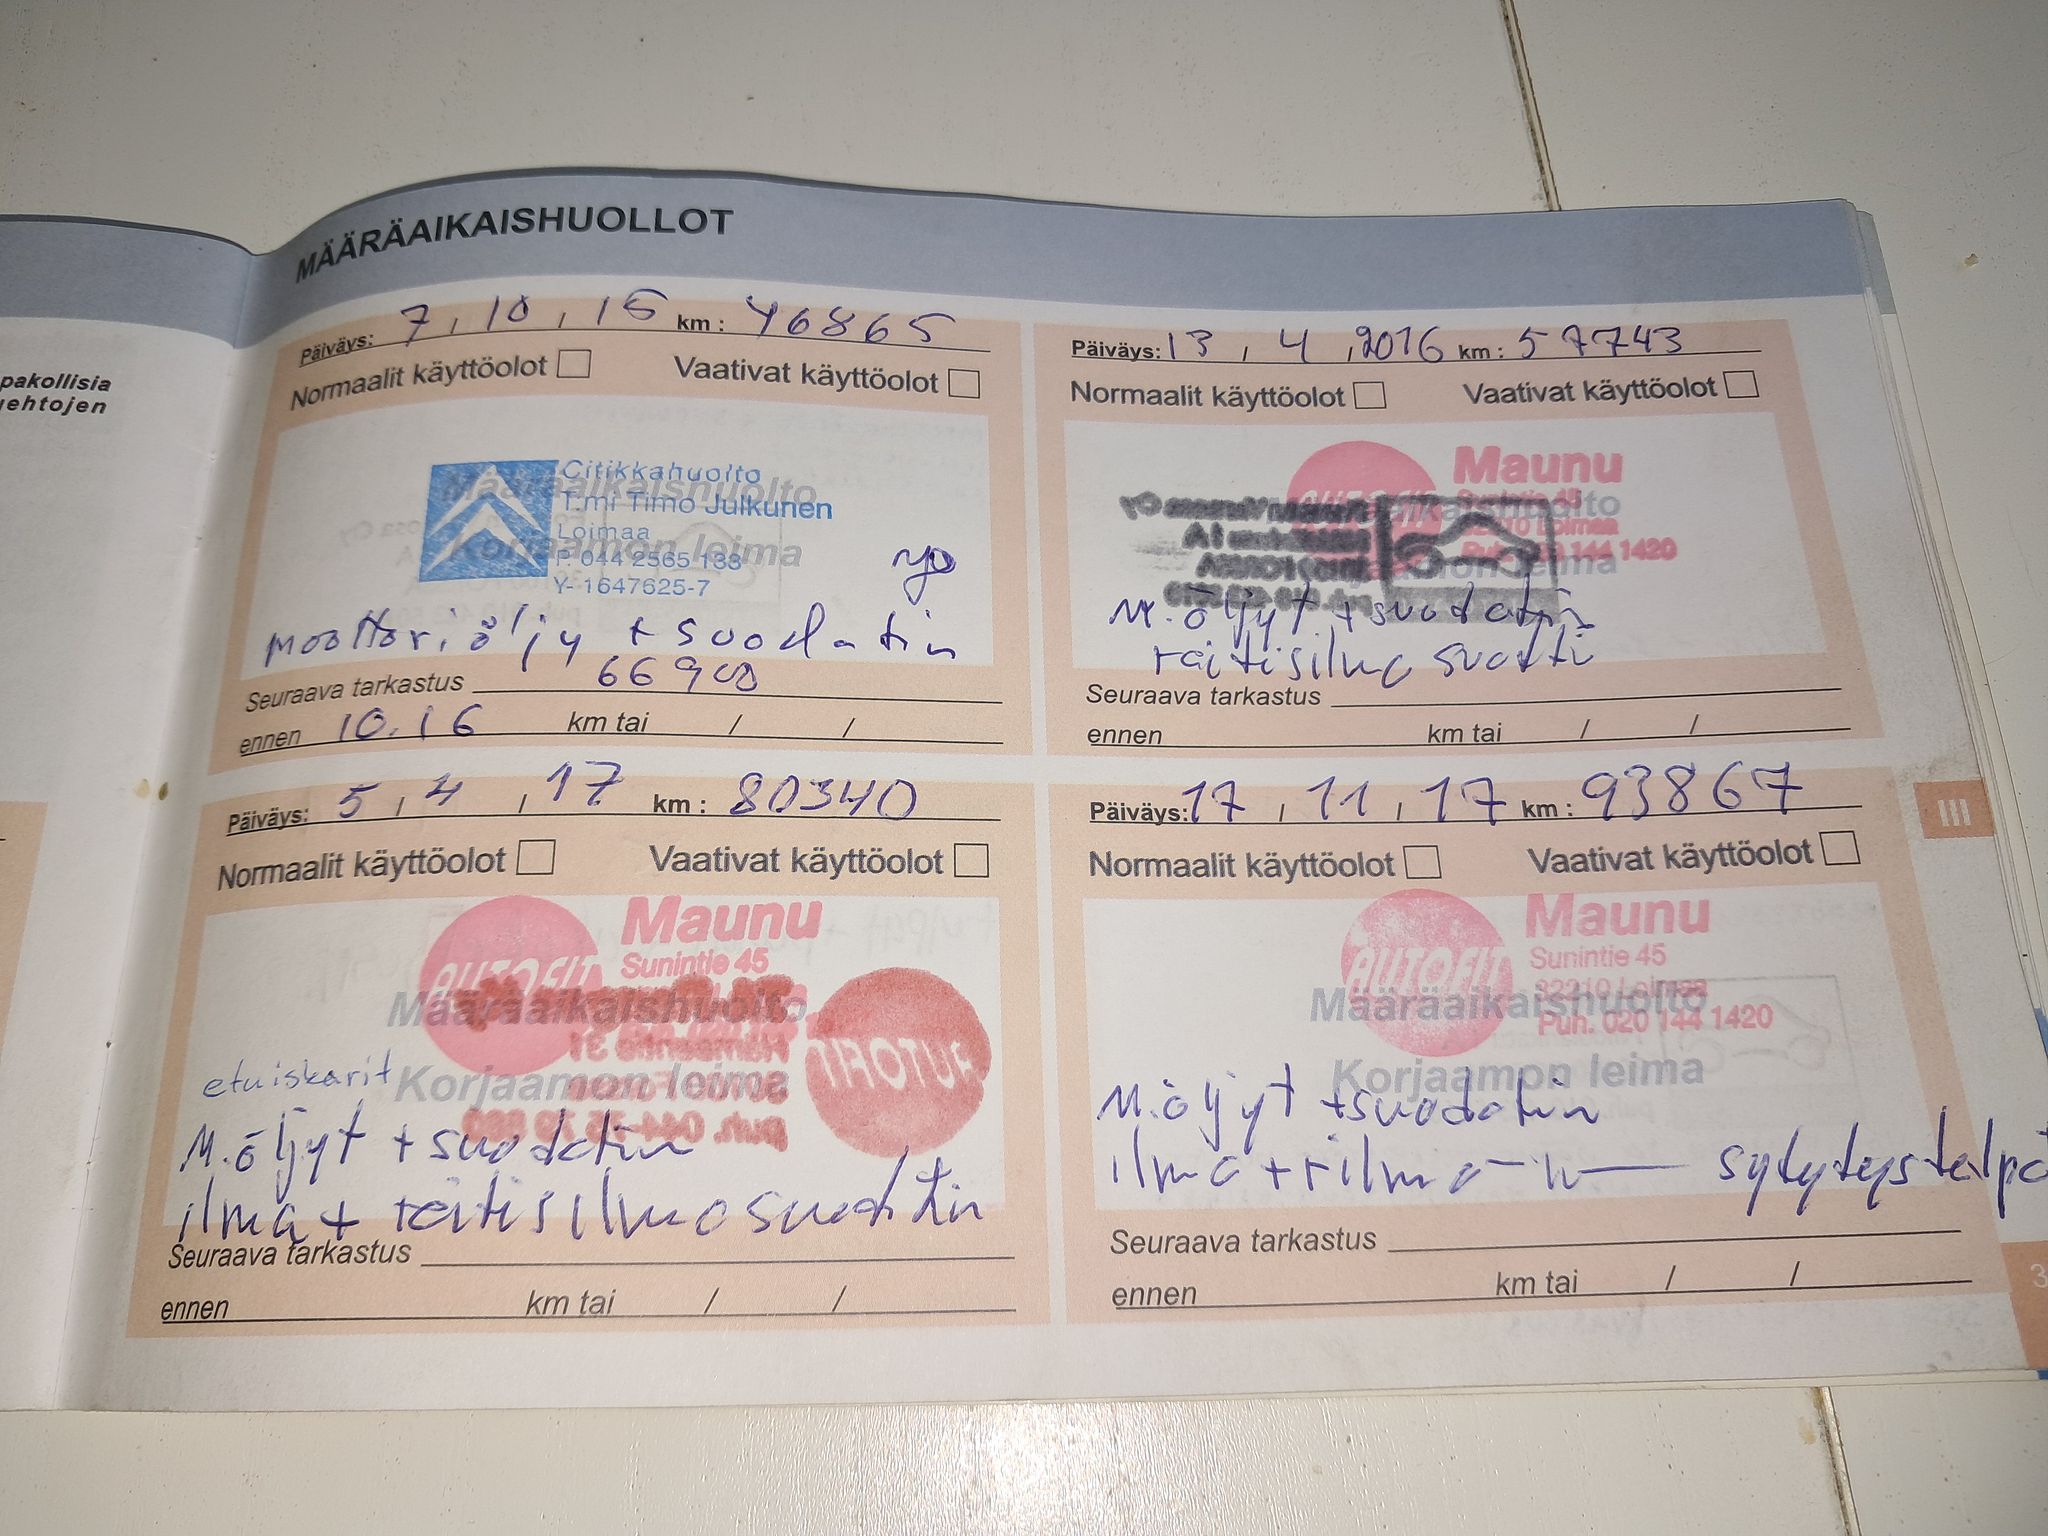 MÄÄRÄAIKAISHUOLLOT
pakollisia
yehtojen
Päiväys: 7 . 10 . 15 km : 46865
Normaalit käyttöolot Vaativat käyttöolot
Citikkahuolto
Määräaikaishuolto
T:mi Timo Julkunen
Loimaa
Korjaamon leima
P. 044 2565 138
Y- 1647625-7
moottoriöljy + suodatin
Seuraava tarkastus 66900
ennen 10.16 km tai / /
Päiväys: 13 . 4 . 2016 km : 57743
Normaalit käyttöolot Vaativat käyttöolot
Maunu
Sunintie 45
Määräaikaishuolto
32210 Loimaa
Puh. 020 144 1420
Korjaamon leima
M.öljyt + suodatin
raitisilma suodti
Seuraava tarkastus
ennen km tai / /
Päiväys: 5 . 4 . 17 km : 80340
Normaalit käyttöolot Vaativat käyttöolot
AUTOFIT Maunu
Sunintie 45
Määräaikaishuolto
AUTOFIT
Korjaamon leima
etuiskarit
M.öljyt + suodatin
ilma + raitisilmasuodatin
Seuraava tarkastus
ennen km tai / /
Päiväys: 17 . 11 . 17 km : 93867
Normaalit käyttöolot Vaativat käyttöolot
AUTOFIT Maunu
Sunintie 45
32210 Loimaa
Määräaikaishuolto
Puh. 020 144 1420
Korjaamon leima
M.öljyt + suodatin
ilma + r.ilma —"— sytytystulpa
Seuraava tarkastus
ennen km tai / /
III
3